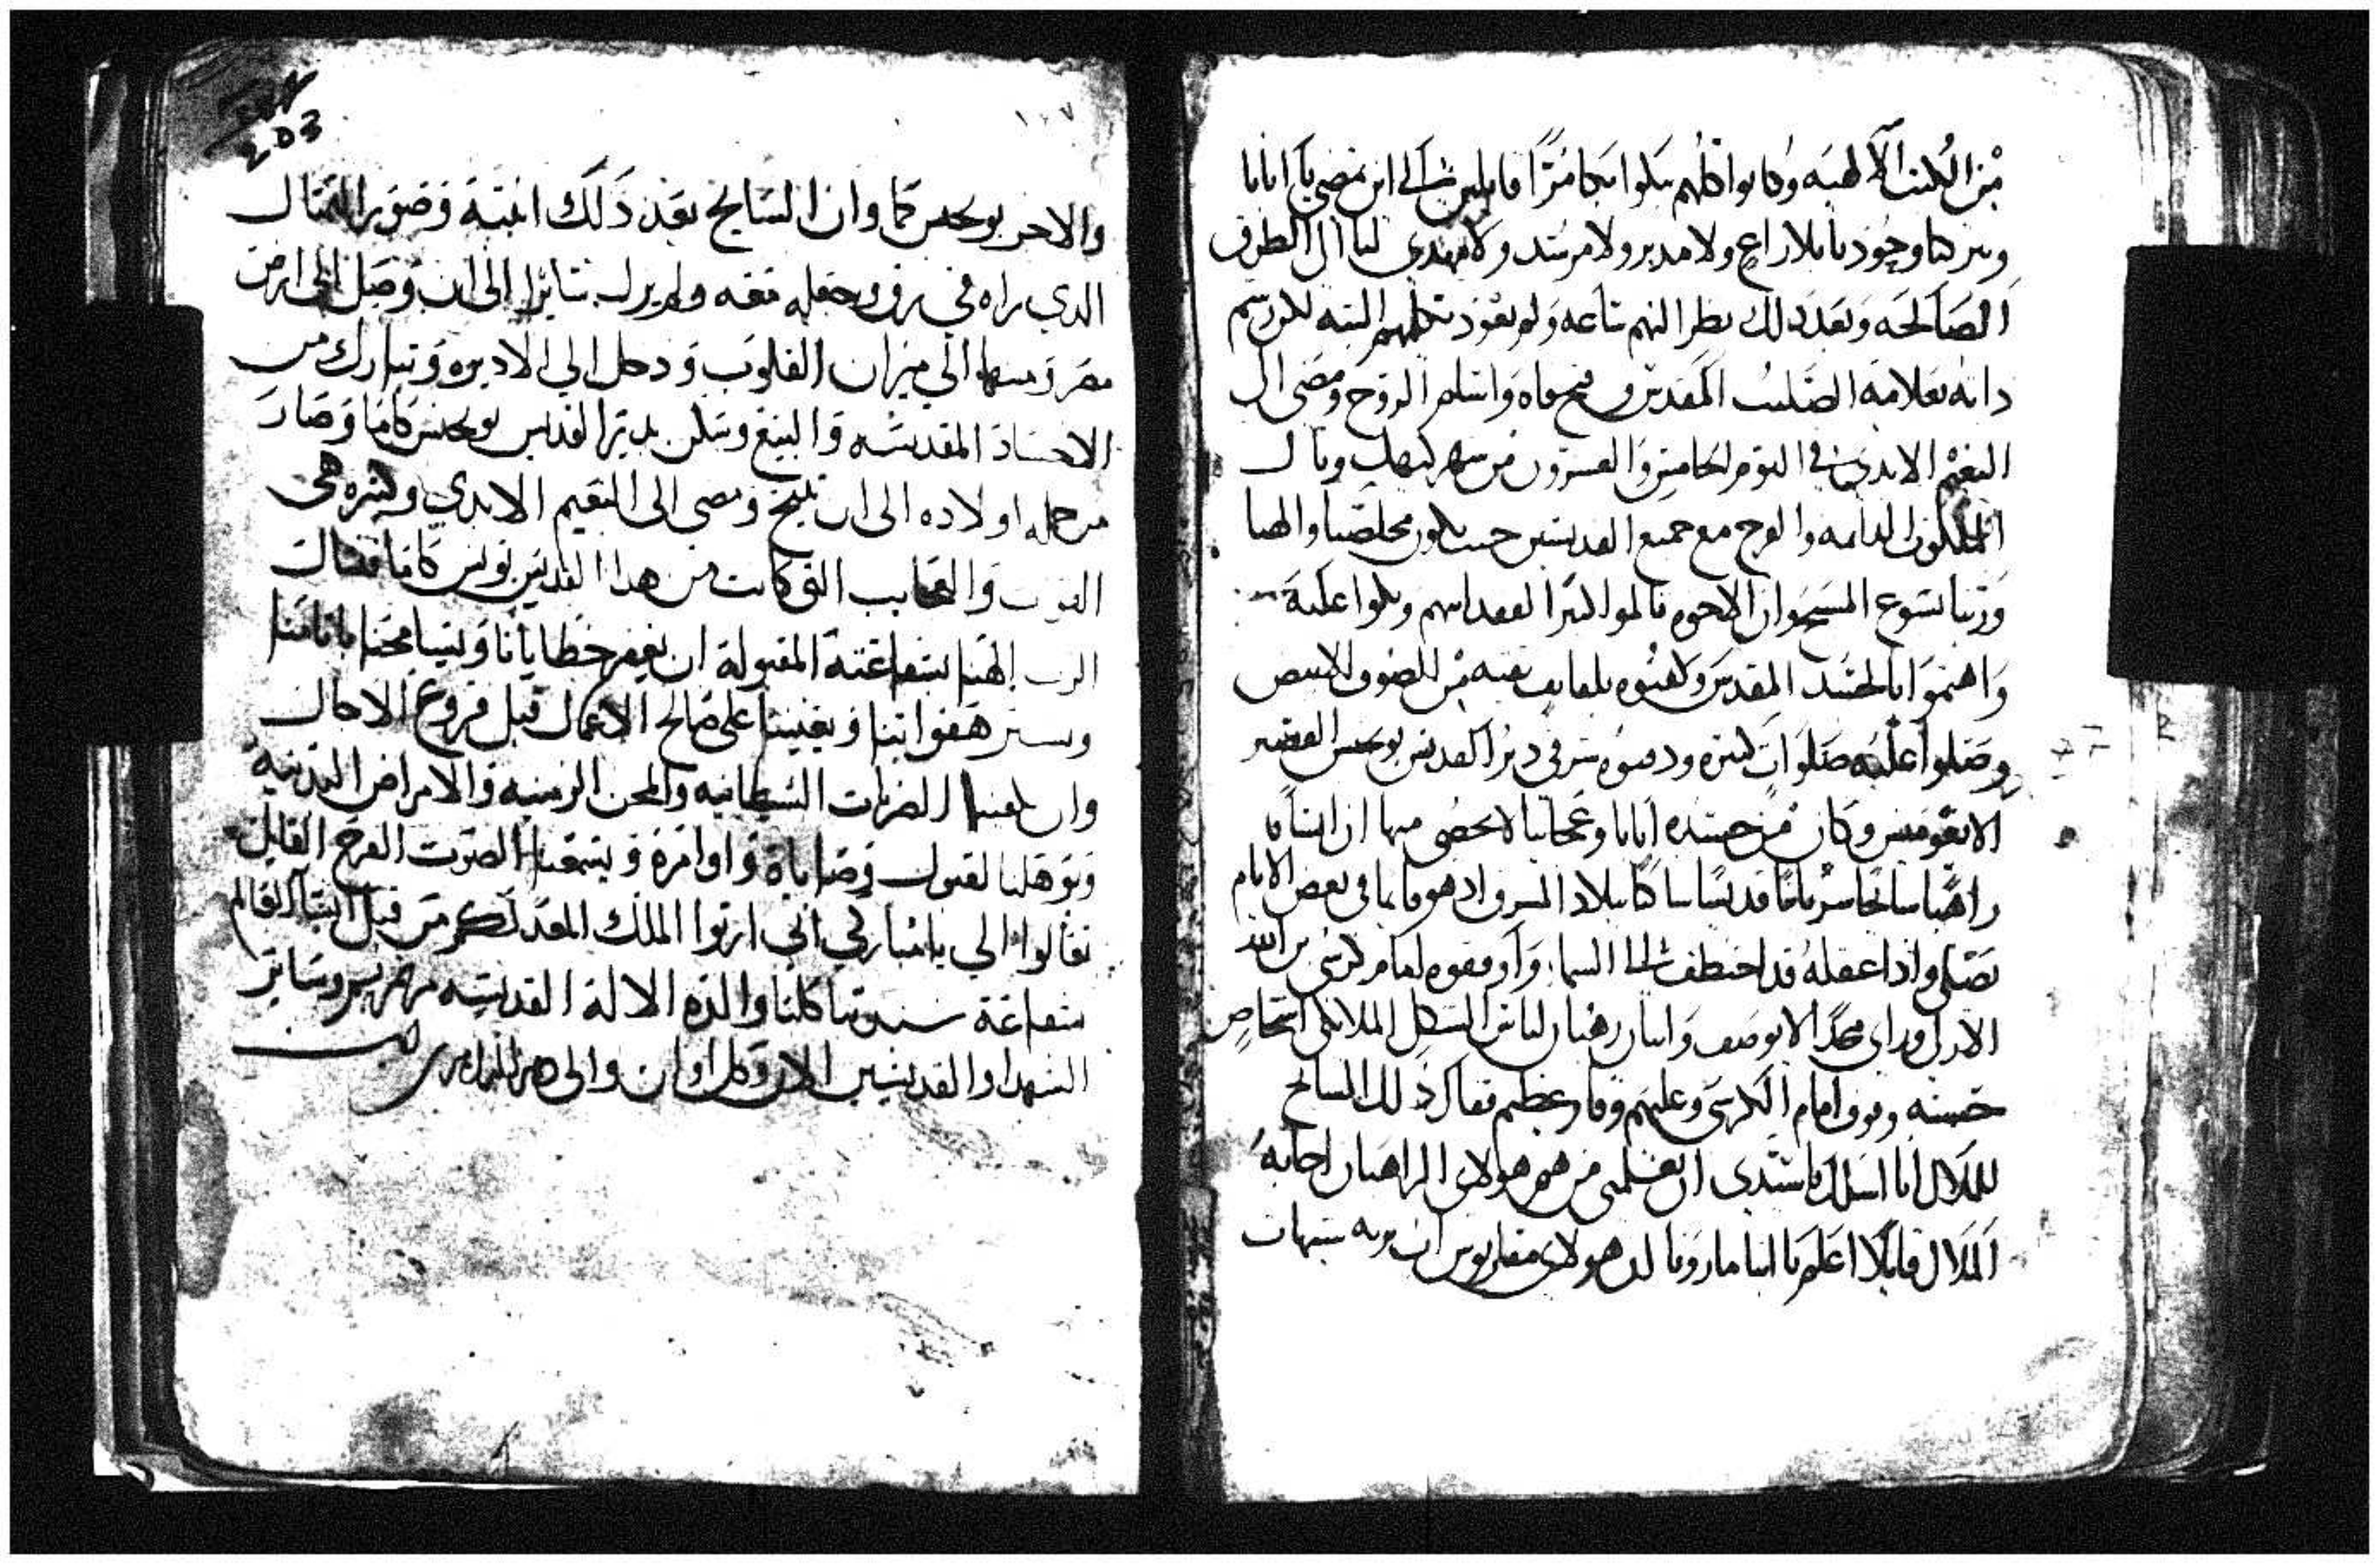 من الكتب الالهيه وكانوا كلهم يبكوا بكا مرا قايلين الى اين تمضي يا ابانا
وتتركنا وحودنا بلا راعٍ ولا مدبر ولا مرشد ولا مهدي لنا الى الطرق
الصالحه وبعد ذلك نظر اليهم ساعه ولم يعود يكلمهم البته بل رسم
ذاته بعلامة الصليب المقدس وفتح فاه واسلم الروح ومضى الى
النعيم الابدي في اليوم الخامس والعشرون من شهر كيهك ونال
الملكوت الدايمه والفرح مع جميع القديسين حيث يكون مخلصنا والهنا
وربنا يسوع المسيح وان الاخوه تالموا كثيرا لفقد ابيهم وبكوا عليه
واهتموا بالجسد المقدس وكفنوه بلفايف نقيه من الصوف الابيض
وصلوا عليه صلوات كثيره ودفنوه في دير القديس يوحنس القصير
الايغومنس وكان من جسده ايات وعجايبا لا تحصى منها ان انسانا
راهبا سايحا سريانيا قديسا ساكنا ببلاد الشرق اذ هو قايما في بعض الايام
يصلي واذا عقله قد اختطف الى السما واوقفوه امام كرسي بن الله
الازلي وراى مجدا لا يوصف واثنان رهبان لباس الشكل الملايكي اشخاص
حسنه وقوف امام الكرسي وعليهم وقار عظيم فقال ذلك السايح
للملاك انا اسالك يا سيدي ان تعلمني من هم هولاي الراهبان اجابه
الملاك قايلا اعلم يا انبا ماروتا ان هولاي مقاريوس اب برية شيهات
١٠٧
203
والاخر يوحنس كما وان السايح بعد ذلك انتبه وصور التمثال
الذي راه في رق وجعله معه ولم يزل سايرا الى ان وصل الى ارض
مصر ومنها الى ميزان القلوب ودخل الى الاديره وتبارك من
الاجساد المقدسه والبيع وسكن بدير القديس يوحنس كاما وصار
من جملة اولاده الى ان تنيح ومضى الى النعيم الابدي وكثيره هي
القوات والعجايب التي كانت من هذا القديس يونس كاما فنسال
الرب الهنا بشفاعته المقبولة ان يغفر خطايانا ويسامحنا باثامنا
وستر هفواتنا ويعيننا على صالح الاعمال قبل فروغ الاجال
وان يعيننا الضربات الشيطانيه والمحن الزمنيه والامراض البدنيه
ويوهلنا لقبول وصاياة واوامرة ويسمعنا الصوت الفرح القايل
تعالوا الي يا مباركي ابي ارثوا الملك المعد لكم من قبل انشا العالم
شفاعة سيدتنا كلنا والدة الالة القديسه مرتمريم وساير
الشهدا والقديسين الان وكل اوان والى دهر الداهرين امين